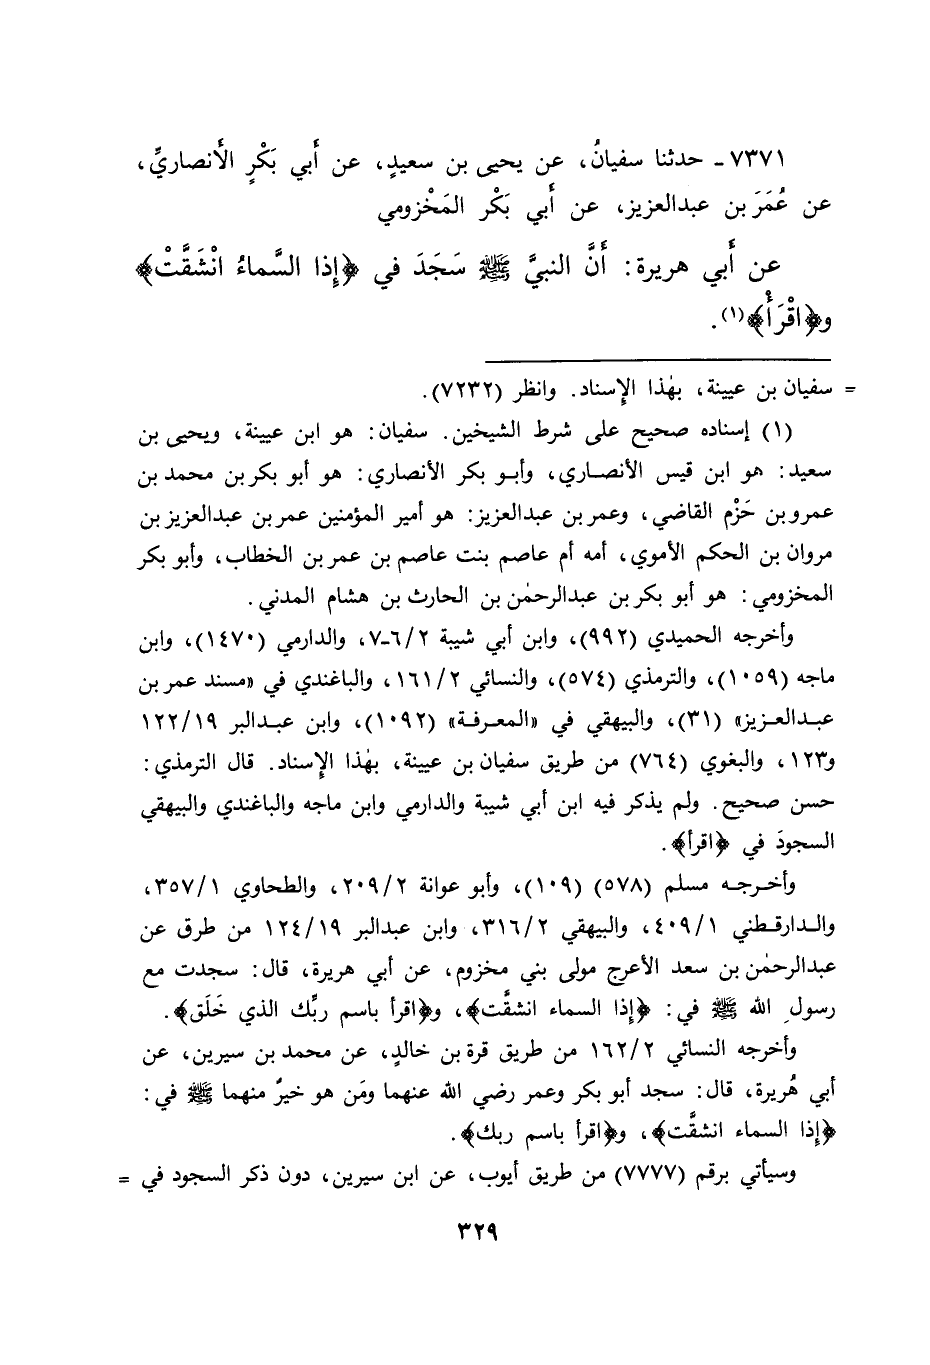 ٧٣٧١ - حدثنا سفيانُ، عن يحيى بن سعيدٍ، عن أَبي بَكْرٍ الأَنصاريِّ،
عن عُمَرَ بن عبدالعزيز، عن أَبي بَكْر المَخْزومي
عن أَبي هريرة: أَنَّ النبيَّ ﷺ سَجَدَ في ﴿إِذا السَّماءُ انْشَقَّتْ﴾
و﴿اقْرَأْ﴾(١).
= سفيان بن عيينة، بهٰذا الإِسناد. وانظر (٧٢٣٢).
(١) إسناده صحيح على شرط الشيخين. سفيان: هو ابن عيينة، ويحيى بن
سعيد: هو ابن قيس الأنصاري، وأبو بكر الأنصاري: هو أبو بكر بن محمد بن
عمرو بن حَزْم القاضي، وعمر بن عبدالعزيز: هو أمير المؤمنين عمر بن عبدالعزيز بن
مروان بن الحكم الأموي، أمه أم عاصم بنت عاصم بن عمر بن الخطاب، وأبو بكر
المخزومي: هو أبو بكر بن عبدالرحمٰن بن الحارث بن هشام المدني.
وأخرجه الحميدي (٩٩٢)، وابن أبي شيبة ٦/٢-٧، والدارمي (١٤٧٠)، وابن
ماجه (١٠٥٩)، والترمذي (٥٧٤)، والنسائي ١٦١/٢، والباغندي في «مسند عمر بن
عبدالعزيز» (٣١)، والبيهقي في «المعرفة» (١٠٩٢)، وابن عبدالبر ١٢٢/١٩
و١٢٣، والبغوي (٧٦٤) من طريق سفيان بن عيينة، بهٰذا الإِسناد. قال الترمذي:
حسن صحيح. ولم يذكر فيه ابن أبي شيبة والدارمي وابن ماجه والباغندي والبيهقي
السجودَ في ﴿اقرأ﴾.
وأخرجه مسلم (٥٧٨) (١٠٩)، وأبو عوانة ٢٠٩/٢، والطحاوي ٣٥٧/١،
والدارقطني ٤٠٩/١، والبيهقي ٣١٦/٢، وابن عبدالبر ١٢٤/١٩ من طرق عن
عبدالرحمٰن بن سعد الأعرج مولى بني مخزوم، عن أبي هريرة، قال: سجدت مع
رسولِ الله ﷺ في: ﴿إِذا السماء انشقَّت﴾، و﴿اقرأ باسم ربِّك الذي خَلَق﴾.
وأخرجه النسائي ١٦٢/٢ من طريق قرة بن خالدٍ، عن محمد بن سيرين، عن
أبي هُريرة، قال: سجد أبو بكر وعمر رضي الله عنهما ومَن هو خيرٌ منهما ﷺ في:
﴿إذا السماء انشقَّت﴾، و﴿اقرأ باسم ربك﴾.
وسيأتي برقم (٧٧٧٧) من طريق أيوب، عن ابن سيرين، دون ذكر السجود في =
٣٢٩